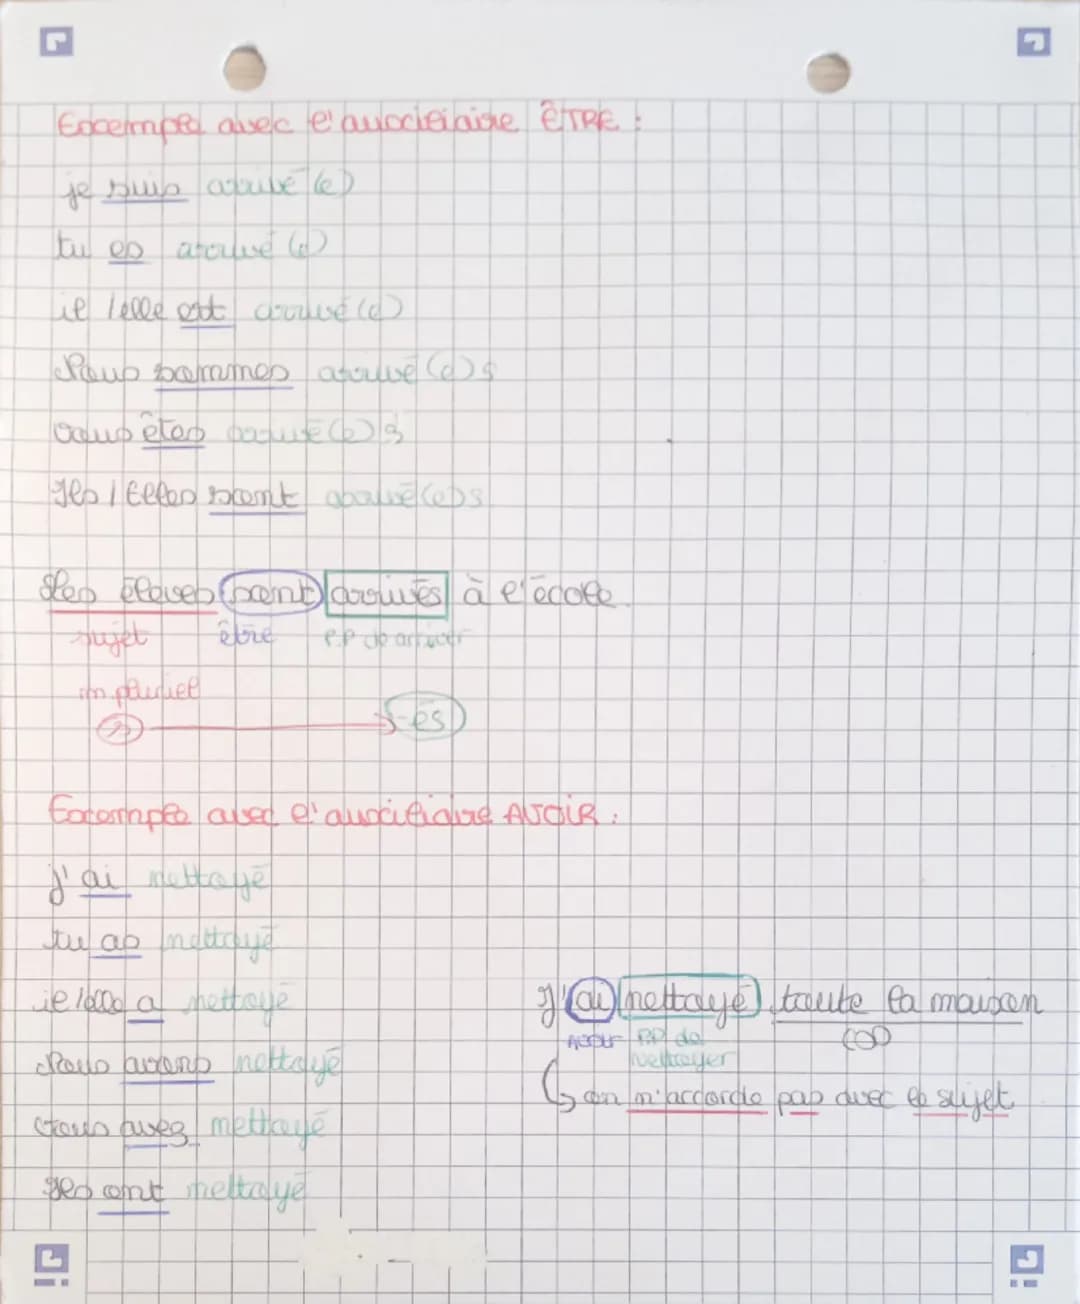 Exemples avec l'auxiliaire ÊTRE :
je suis arrivé(e)
tu es arrivé(e)
il/elle est arrivé(e)
Nous sommes arrivé(e)s
vous êtes arrivé(e)s
Ils/Elles sont arrivé(e)s
Les élèves sont arrivés à l'école.
sujet être P.P de arriver
m. pluriel
-és
Exemple avec l'auxiliaire AVOIR :
j'ai nettoyé
tu as nettoyé
il/elle a nettoyé
Nous avons nettoyé
Vous avez nettoyé
Ils ont nettoyé
J'ai nettoyé toute la maison
AVOIR P.P de nettoyer COD
on n'accorde pas avec le sujet